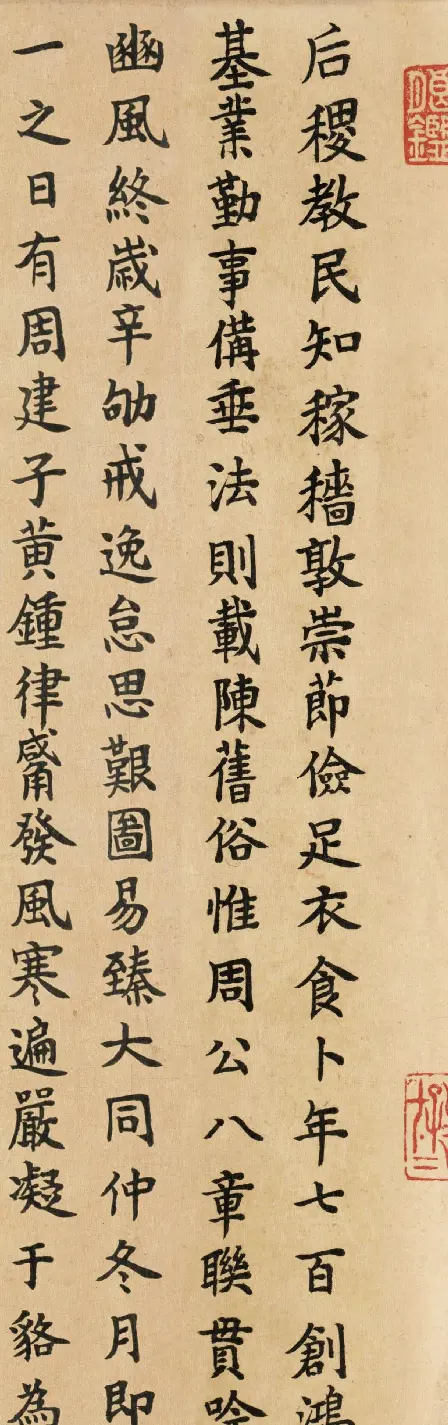 后稷教民知稼穡敦崇節儉足衣食卜年七百創鴻
基業勤事備垂法則載陳舊俗惟周公八章聯貫吟
豳風終歲辛劬戒逸怠思艱圖易臻大同仲冬月即
一之日有周建子黃鍾律觱發風寒遍嚴凝于貉為